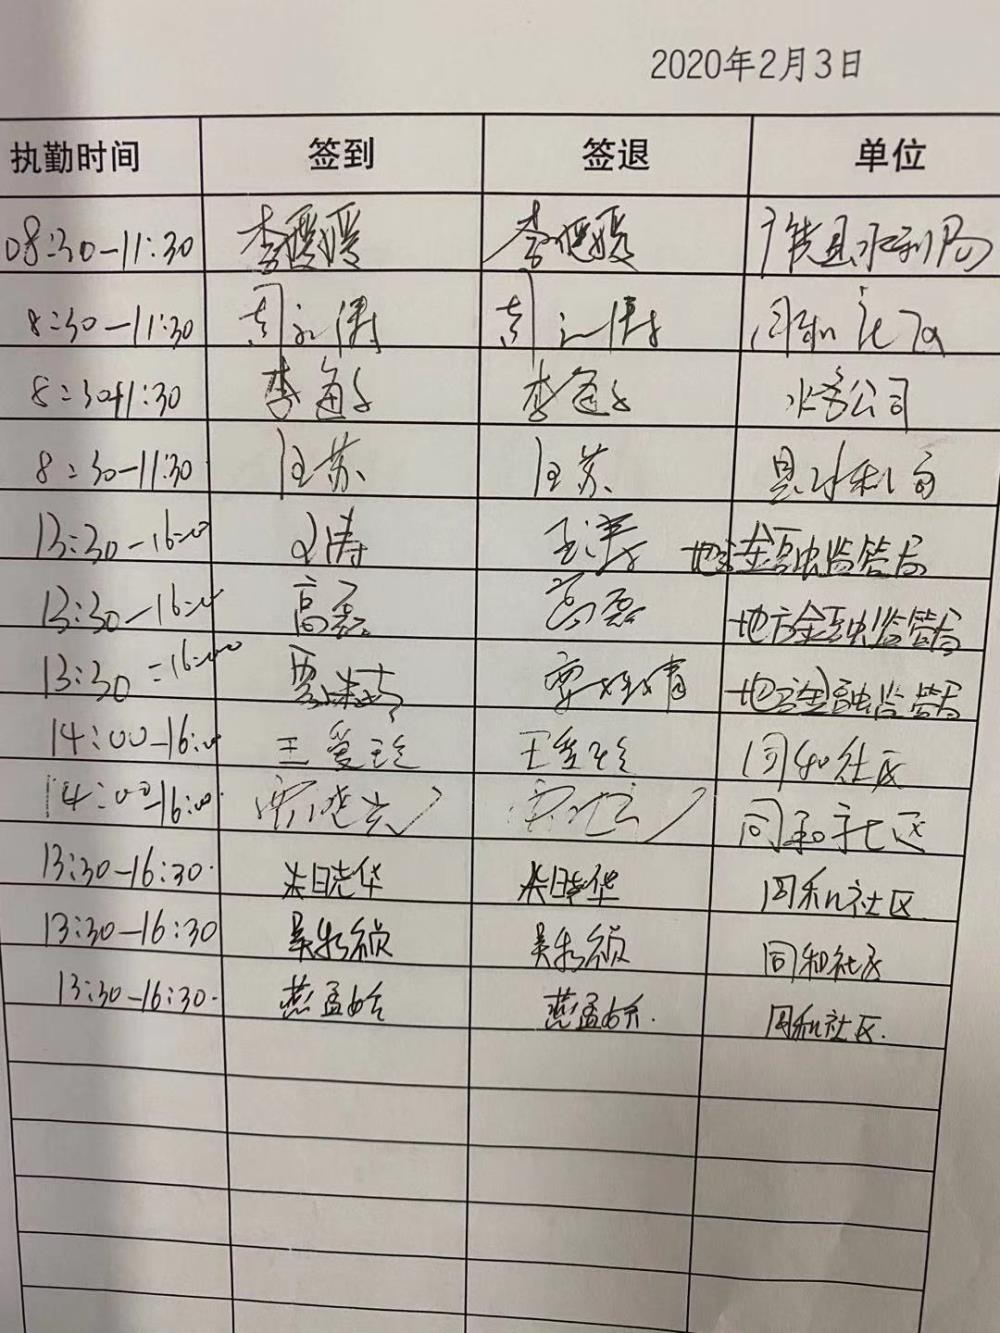 2020年2月3日
执勤时间 签到 签退 单位
08:30-11:30 李媛媛 李媛媛 县水利局
8:30-11:30 周 涛 周 涛 同和社区
8:30-11:30 李 李 水务公司
8:30-11:30 汪苏 汪苏 县水利局
13:30-16:00 王涛 王涛 地方金融监管局
13:30-16:00 高磊 高磊 地方金融监管局
13:30-16:00 贾 贾 地方金融监管局
14:00-16:00 王爱玲 王爱玲 同和社区
14:00-16:00 同和社区
13:30-16:30. 朱晓华 朱晓华 同和社区.
13:30-16:30 吴 吴 同和社区
13:30-16:30. 燕孟 燕孟 同和社区.